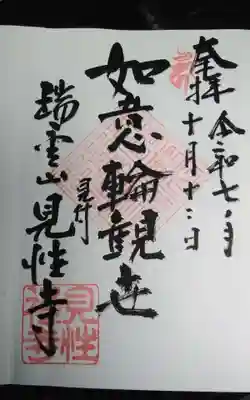 奉拝
令和七年
十月十三日
如意輪観世
見付
瑞雲山見性寺
見性
禅寺